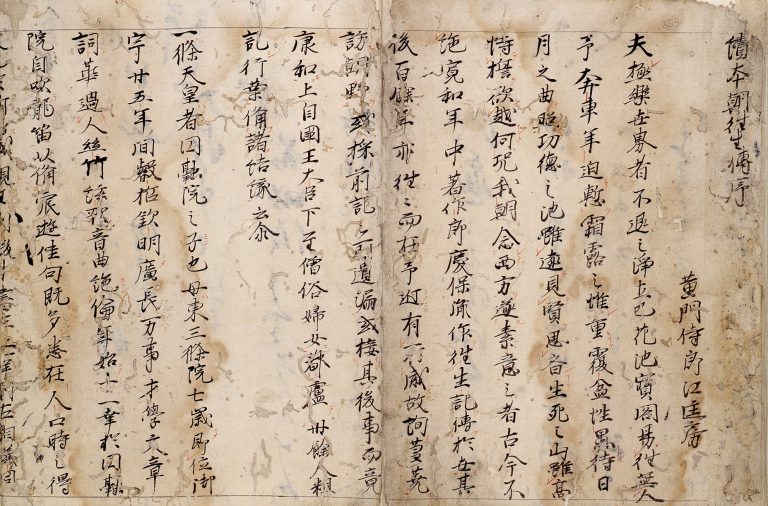 續本朝往生傳序
黄門侍郎江匡房
夫極樂世界者不退之淨土也花池寶閣易往無人
予奔車年迫慙霜露之惟重覆盆性累待日
月之曲照功德之池雖遠見賢思齊生死之山雖高
恃誓欲越何況我朝念西方遂素意之者古今不
絶寛和年中著作郎慶保胤作往生記傳於世其
後百餘年亦往々而在予近有所感故詢蒭蕘
訪朝野或採前記之所遺漏或接其後事而竟
康和上自國王大臣下至僧俗婦女都盧卅餘人粗
記行業備諸結緣云尒
一條天皇者圓融院之子也母東三條院七歳即位御
宇廿五年間叡哲欽明廣長万事才學文章
詞華過人絲竹絃歌音曲絶倫年始十一幸於圓融
院自吹龍笛以備宸遊佳句既多悉在人口時之得